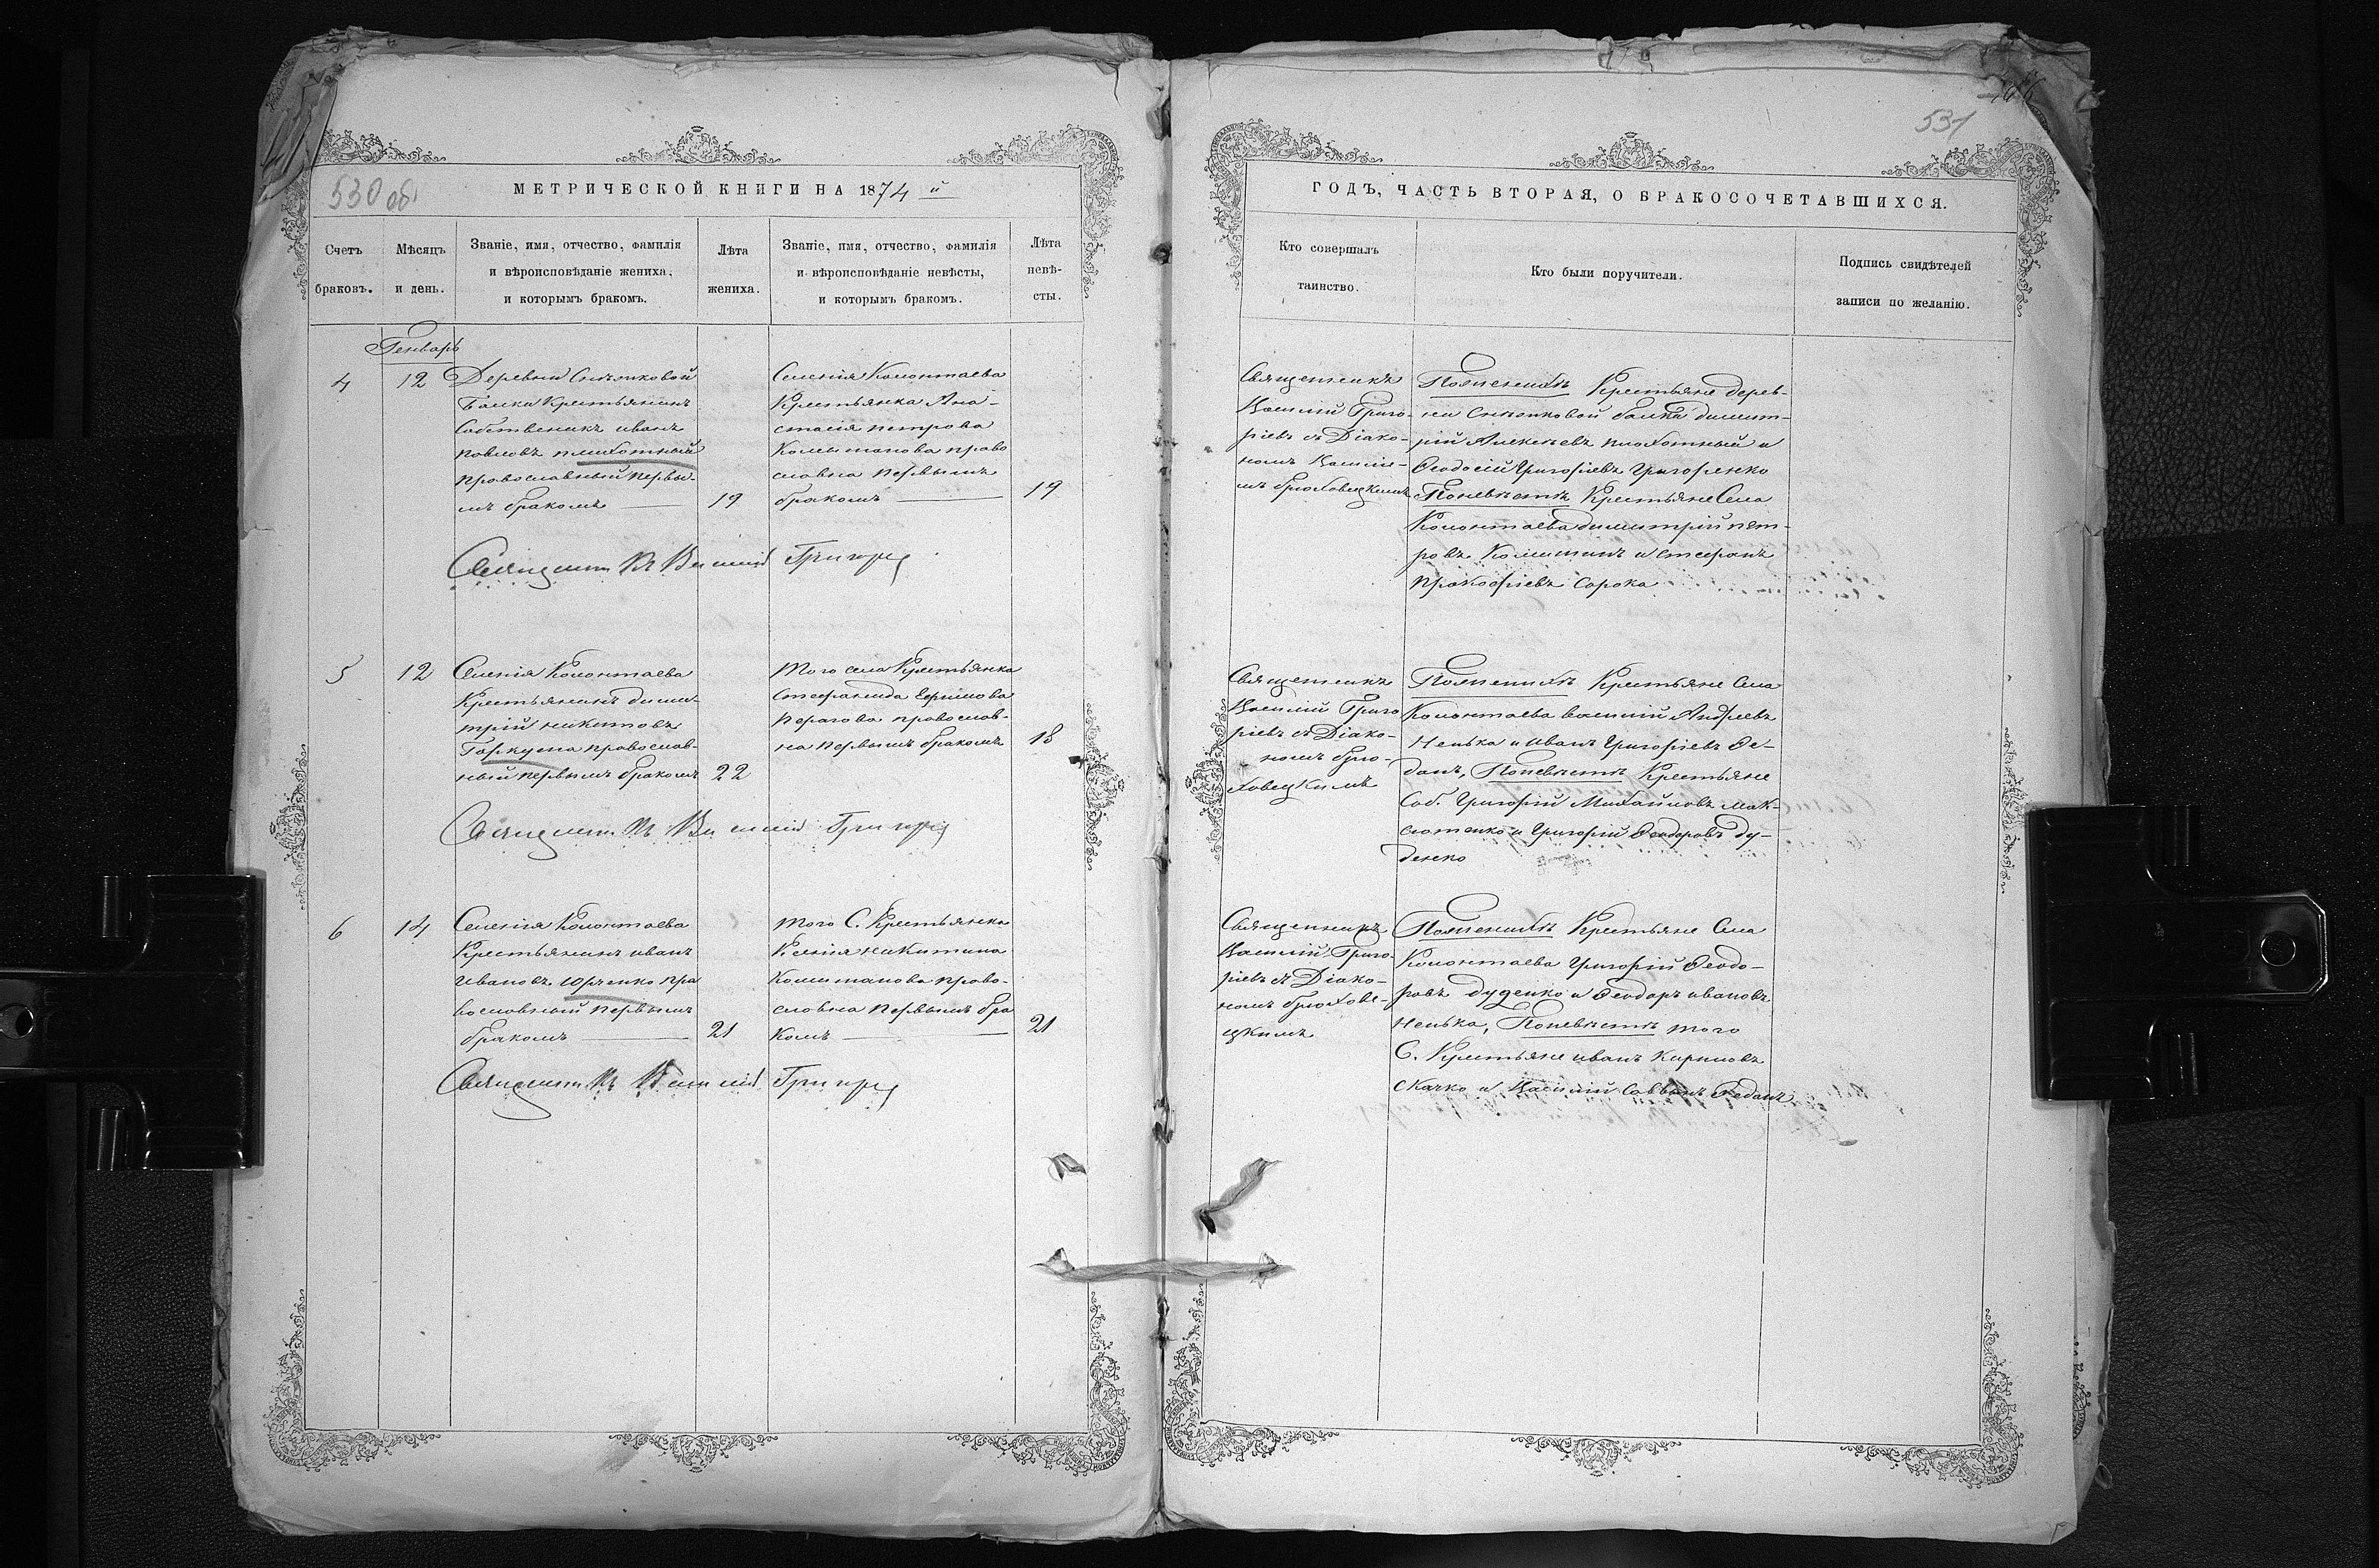 530 об
МЕТРИЧЕСКОЙ КНИГИ НА 1874 й
Счетъ браковъ.
Мѣсяцъ и день.
Званіе, имя, отчество, фамилія
и вѣроисповѣданіе жениха,
и которымъ бракомъ.
Лѣта
жениха.
Званіе, имя, отчество, фамилія
и вѣроисповѣданіе невѣсты,
и которымъ бракомъ.
Лѣта
невѣ-
сты.
Генварь
4
12
Деревни
Балки Крестьянинъ
Собственикъ иванъ
павловъ плихотный
православный первы-
мъ бракомъ
19
Селенія Колонтаева
Крестьянка Ана-
стасія петрова
право
славна первымъ
бракомъ
19
Священникъ Василій Григор
5
12
Селенія Колонтаева
Крестьянинъ дими-
трій никитовъ
Гаркуша православ-
ный первымъ бракомъ
22
того села Крестьянка
Стефанида Ефимова
православ-
на первымъ бракомъ
18
Священникъ Василій Григор
6
14
Селенія Колонтаева
Крестьянинъ иванъ
ивановъ Юрченко пра
вославный первымъ
бракомъ
21
того С. Крестьянка
Ксенія никитина
право-
славна первымъ бра
комъ
21
Священникъ Василій Григор
531
ГОДЪ, ЧАСТЬ ВТОРАЯ, О БРАКОСОЧЕТАВШИХСЯ.
Кто совершалъ
таинство.
Кто были поручители.
Подпись свидѣтелей
записи по желанію.
Священникъ
Василій Григо-
ріевъ съ Діако-
номъ Василіе-
мъ брюховецкимъ
По женихѣ Крестьяне дерев-
ни балки димит-
рій Алексѣевъ плохотный и
Феодосій Григоріевъ Григоренко
По невѣстѣ Крестьяне Села
Колонтаева димитрій пет-
ровъ и стефанъ
Прокофіевъ Сорока
Священникъ
Василій Григо
ріевъ съ Діако-
номъ брю-
ховецкимъ
По женихѣ Крестьяне Села
Колонтаева василій Андреевъ
Ненька и иванъ Григоріевъ Ѳе-
данъ, По невѣстѣ Крестьяне
Соб. Григорій Михайловъ мак-
сютенко и Григорій Ѳеодоровъ Ду-
денко
Священникъ
Василій Григо-
ріевъ съ Діако-
номъ брюхове-
цкимъ
По женихѣ Крестьяне Села
Колонтаева Григорій Ѳеодо-
ровъ Дуденко и Ѳеодоръ ивановъ
Ненька, По невѣстѣ того
С. Крестьяне иванъ Кириловъ
Скачко и Василій Саввинъ Ѳеданъ